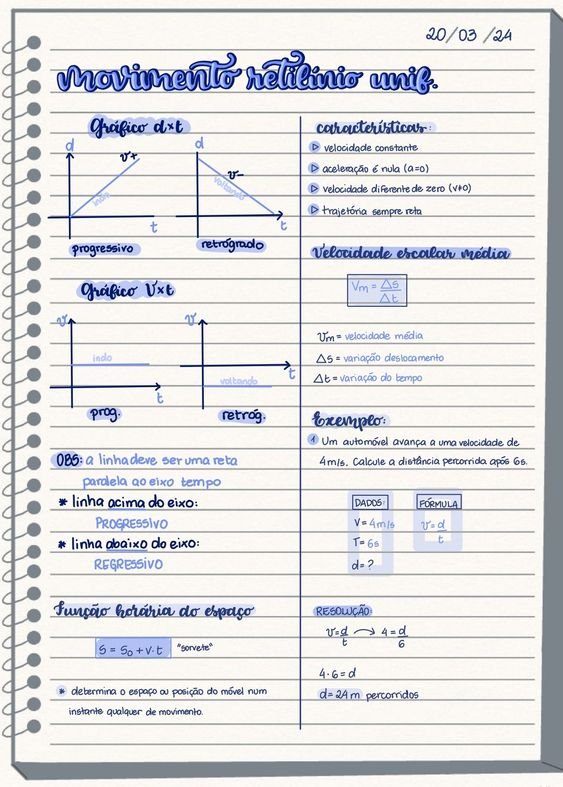 20/03/24
movimento retilínio unif.
Gráfico d×t
d
v+
indo
t
progressivo
d
v-
voltando
t
retrógrado
Gráfico V×t
v
indo
t
prog.
v
t
voltando
retróg.
OBS: a linha deve ser uma reta
paralela ao eixo tempo
* linha acima do eixo:
PROGRESSIVO
* linha abaixo do eixo:
REGRESSIVO
Função horária do espaço
S = S₀ + v · t "sorvete"
* determina o espaço ou posição do móvel num
instante qualquer de movimento.
características:
▷ velocidade constante
▷ aceleração é nula (a=0)
▷ velocidade diferente de zero (v≠0)
▷ trajetória sempre reta
Velocidade escalar média
Vm = Δs
Δt
Vm = velocidade média
Δs = variação deslocamento
Δt = variação do tempo
Exemplo:
1 Um automóvel avança a uma velocidade de
4m/s. Calcule a distância percorrida após 6s.
DADOS:
V = 4m/s
T = 6s
d = ?
FÓRMULA
v = d
t
RESOLUÇÃO:
v = d → 4 = d
t 6
4 · 6 = d
d = 24m percorridos